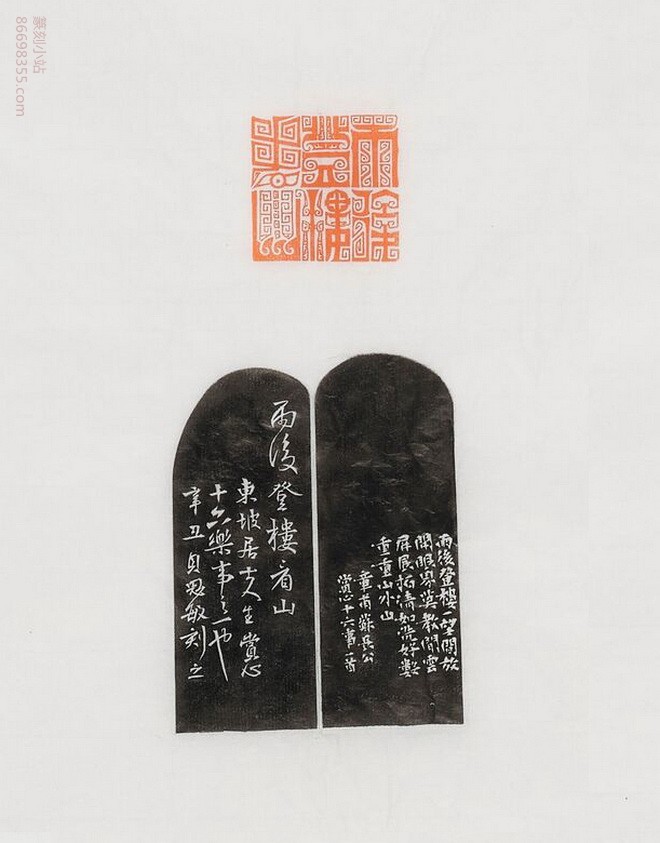 篆刻小站
86698355.com
雨後
登樓
看山
雨後登樓一望開放
閑眼界莫教閒雲
屏展拓清如洗好數
重重山外山
章甫蘇長公
賞心十六事一首
雨後登樓看山
東坡居士人生賞心
十六樂事之一也
辛丑貞思敏刻之